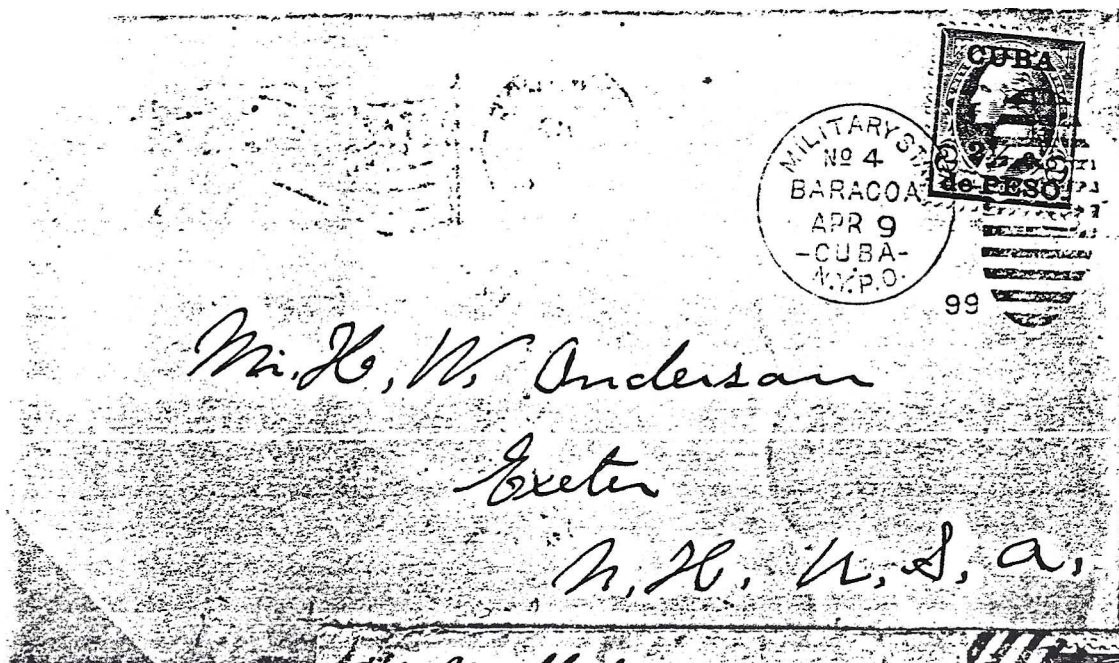 CUBA
2
de PESO.
MILITARY STA
Nº 4
BARACOA
APR 9
-CUBA-
N.Y.P.O.
99
Mr. H. W. Anderson
Exeter
N. H. U. S. A.